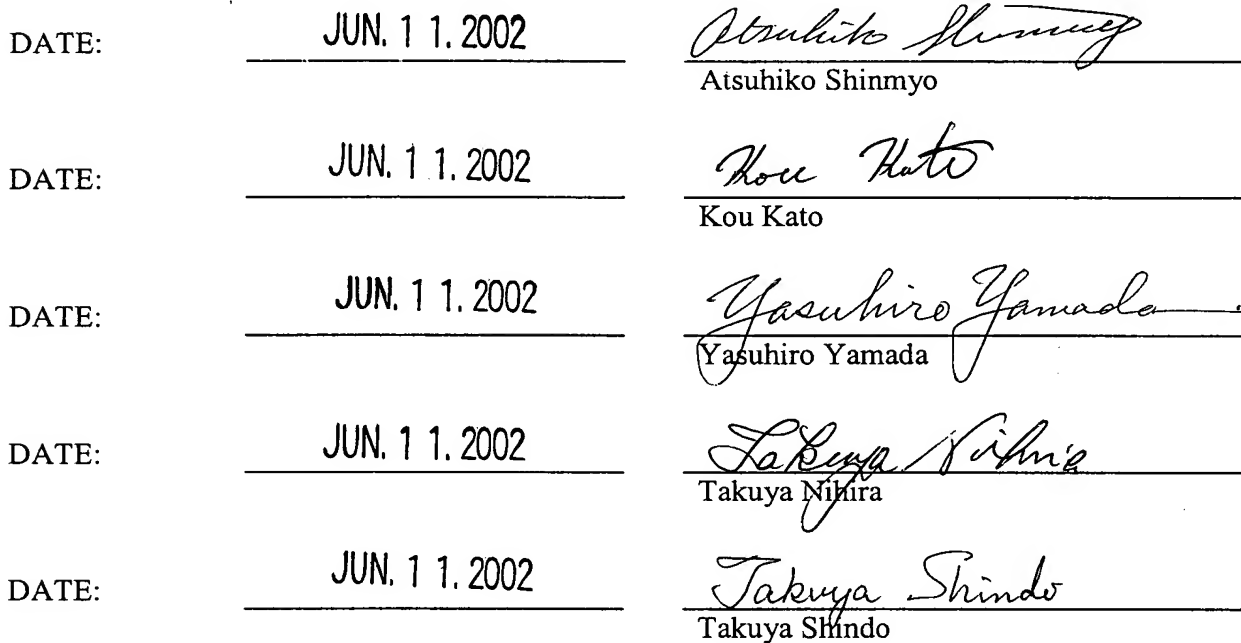 DATE: JUN. 1 1. 2002 Atsuhiko Shinmyo
Atsuhiko Shinmyo
DATE: JUN. 1 1. 2002 Kou Kato
Kou Kato
DATE: JUN. 1 1. 2002 Yasuhiro Yamada
Yasuhiro Yamada
DATE: JUN. 1 1. 2002 Takuya Nihira
Takuya Nihira
DATE: JUN. 1 1. 2002 Takuya Shindo
Takuya Shindo